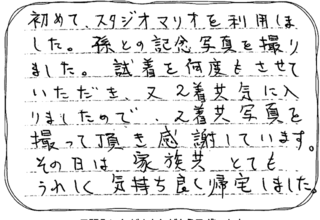 初めて、スタジオマリオを利用しま
した。孫との記念写真を撮り
ました。試着を何度もさせて
いただき、又、2着共気に入
りましたので、2着共写真を
撮って頂き感謝しています。
その日は、家族共、とても
うれしく気持ち良く帰宅しました。